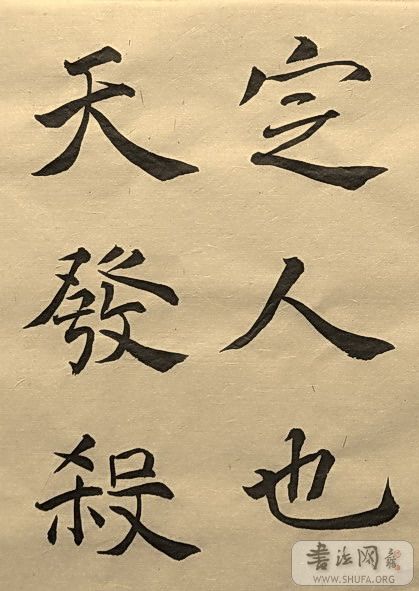 定人也
天發殺
書法网
WWW.SHUFA.ORG